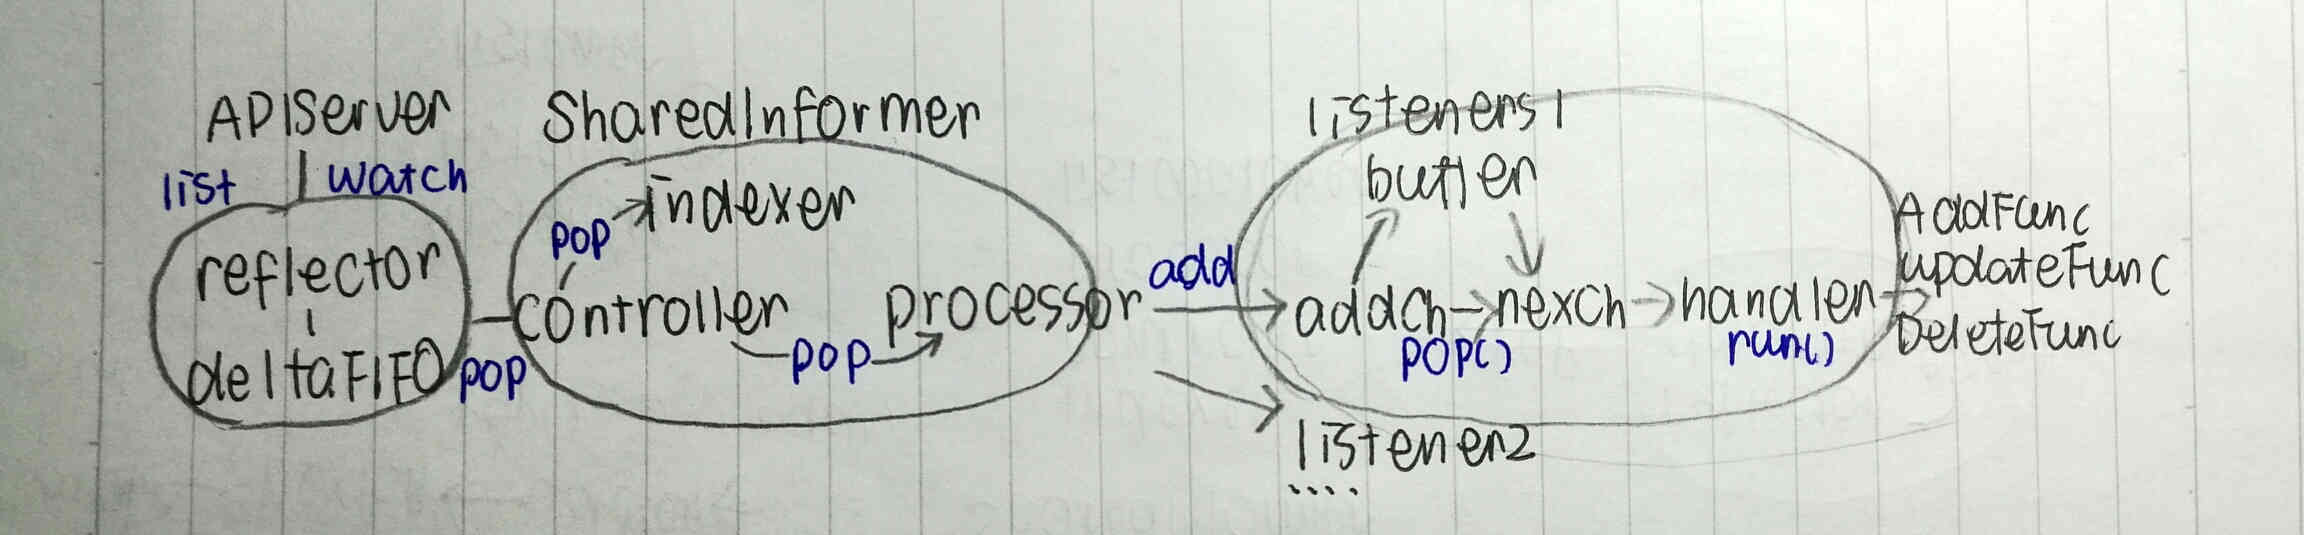 APIServer
list watch
reflector
deltaFIFO
pop
SharedInformer
indexer
pop
controller
processor
pop
add
listeners1
buffer
addch nexch handler
pop() run()
AddFunc
updateFunc
DeleteFunc
listener2
....